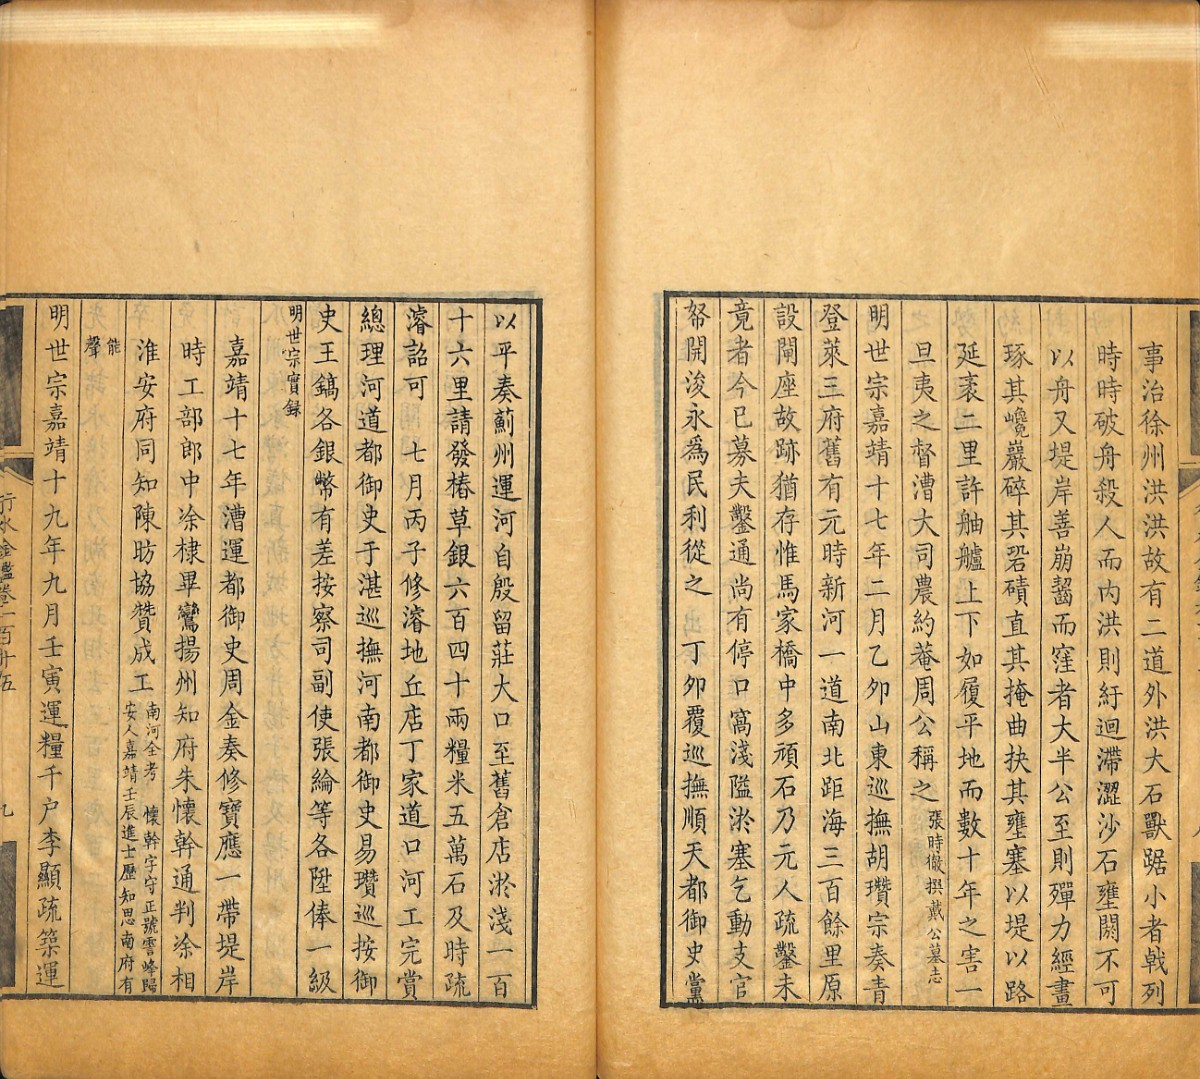 事治徐州洪洪故有二道外洪大石獸踞小者戟列
時時破舟殺人而內洪則紆迴滯澀沙石壅閼不可
以舟又堤岸善崩齧而窪者大半公至則殫力經畫
琢其巉巖碎其硌磧直其掩曲抉其壅塞以堤以路
延袤二里許舳艫上下如履平地而數十年之害一
旦夷之督漕大司農約菴周公稱之張時徹撰戴公墓志
明世宗嘉靖十七年二月乙卯山東巡撫胡瓚宗奏青
登萊三府舊有元時新河一道南北距海三百餘里原
設閘座故跡猶存惟馬家橋中多頑石乃元人疏鑿未
竟者今已募夫鑿通尚有停口窩淺隘淤塞乞動支官
帑開浚永為民利從之 丁卯覆巡撫順天都御史黨
以平奏薊州運河自殷留莊大口至舊倉店淤淺一百
十六里請發椿草銀六百四十兩糧米五萬石及時疏
濬詔可 七月丙子修濬地丘店丁家道口河工完賞
總理河道都御史于湛巡撫河南都御史易瓚巡按御
史王鎬各銀幣有差按察司副使張綸等各陞俸一級
明世宗實錄
嘉靖十七年漕運都御史周金奏修寶應一帶堤岸
時工部郎中凃棣畢鸞揚州知府朱懷幹通判凃相
淮安府同知陳昉協贊成工
南河全考 懷幹字守正號雲峰歸
安人嘉靖壬辰進士歷知思南府有
能
聲
明世宗嘉靖十九年九月壬寅運糧千户李顯疏築運
行水金鑑卷一百十五
九